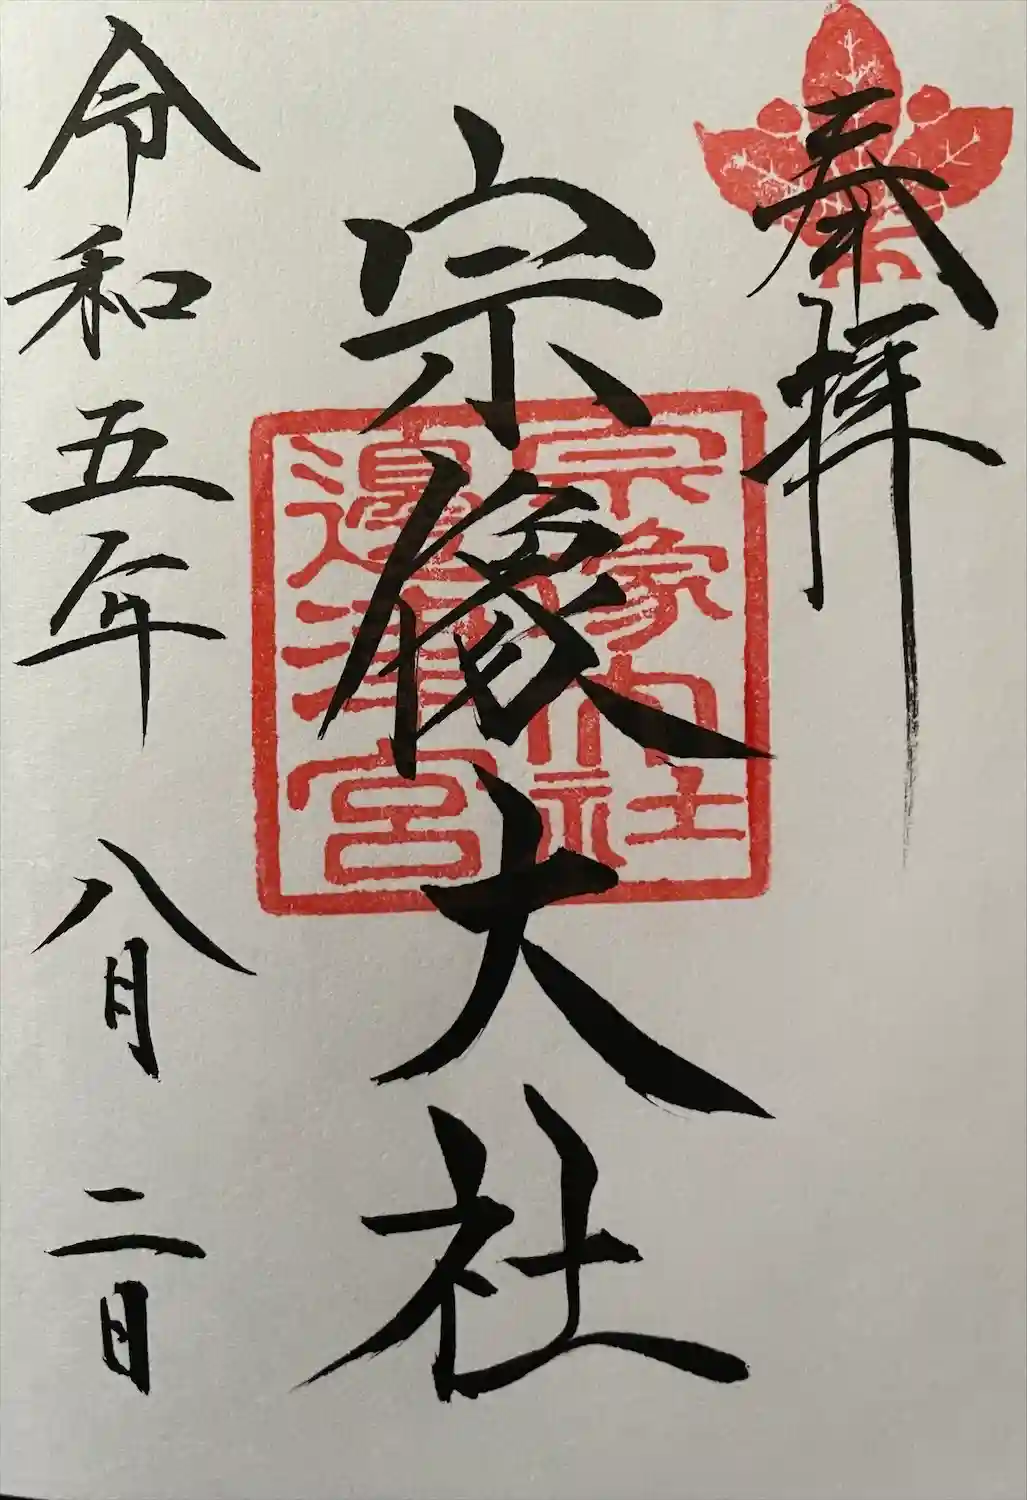 奉拝
宗像大社
宗象大社
邊津宮
令和五年 八月 二日